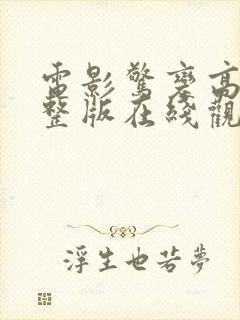 電影驚變高
整版在綫觀
浮生也若夢